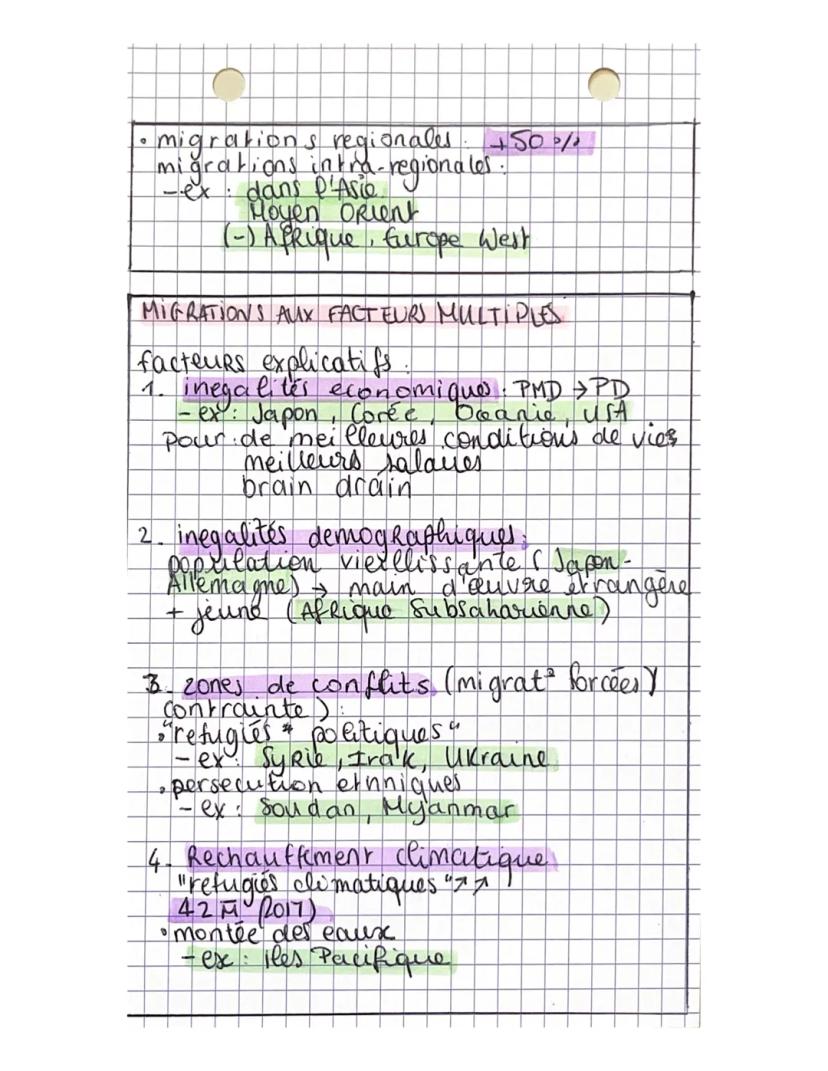 • migrations regionales : +50 %
migrations intra-regionales :
- ex : dans l'Asie
Moyen Orient
(-) Afrique, Europe West
MIGRATIONS AUX FACTEURS MULTIPLES
facteurs explicatifs :
1. inegalités economiques : PMD → PD
- ex : Japon, Corée, Océanie, USA
pour : de meilleures conditions de vies
meilleurs salaires
brain drain
2. inegalités demographiques :
population vieillissante (Japon-
Allemagne) → main d'œuvre étrangère
+ jeune (Afrique Subsaharienne)
3. zones de conflits (migrat° forcées/
contrainte) :
• "refugiés * politiques"
- ex : Syrie, Irak, Ukraine
• persecution ethniques
- ex : Soudan, Myanmar
4. Rechauffement climatique
"refugiés climatiques" ↗↗
42 M (2017)
• montée des eaux
- ex : Iles Pacifique